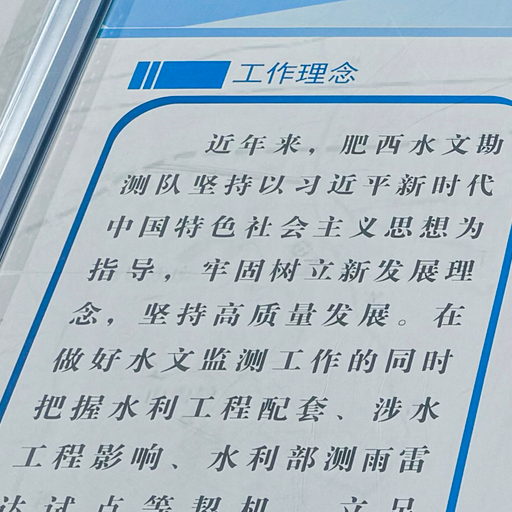 工作理念
近年来，肥西水文勘
测队坚持以习近平新时代
中国特色社会主义思想为
指导，牢固树立新发展理
念，坚持高质量发展。在
做好水文监测工作的同时
把握水利工程配套、涉水
工程影响、水利部测雨雷
达试点等契机，立足